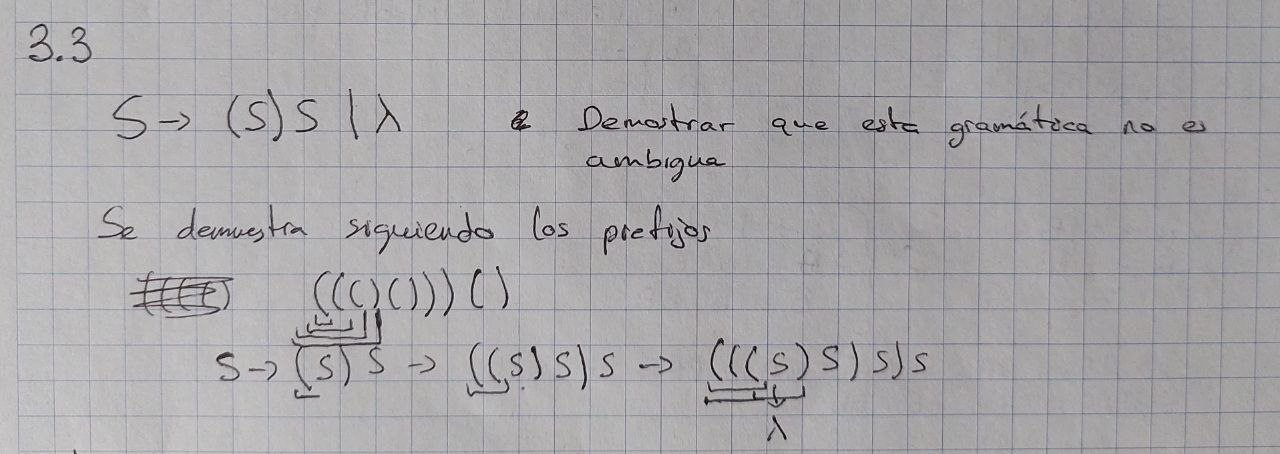 3.3
S → (S)S | λ Demostrar que esta gramática no es
ambigua
Se demuestra siguiendo los prefijos
((()()))()
S → (S)S → ((S)S)S → (((S)S)S)S
λ